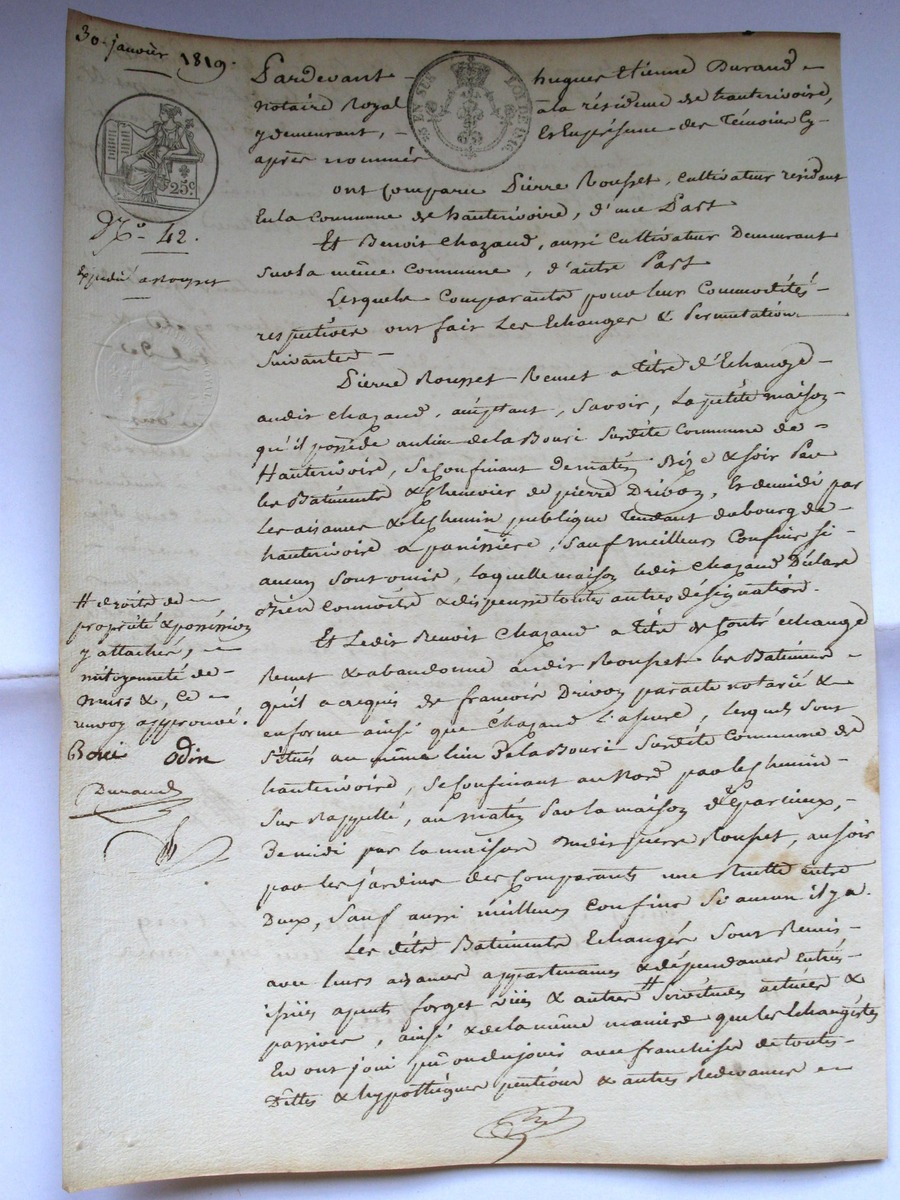 30 janvier 1819.
Pardevant hugues Etienne Durand
notaire Royal à la résidence de hauterivoire,
y demeurant, Et En présence des Témoins Cy
après nommés
EN SUS
LOI DE 1816
25c
No. 42.
Expédié a rousset
ont Comparu Pierre Rousset, Cultivateur résidant
En la Commune de hauterivoire, d'une Part
Et Benoit Chazaud, aussi Cultivateur Demeurant
Sur la même Commune, d'autre Part
Lesquels Comparants pour leur Commodités
respectives ont fait Les Echanges & Permutation
Suivantes
Pierre Rousset Remet a titre d'Echange
audit Chazaud, acceptant, Savoir, La petite maison
qu'il possède au lieu de la Bouri Surdite Commune de
Hauterivoire, Se Confinant de matin Bize & soir Par
les Batiments & Chenevier de pierre Drivon, Et de midi par
Les aisances & le Chemin publique Tendant du bourg de
hauterivoire a panissière, Sauf meilleurs Confins Si
aucuns Sont omis, laquelle maison ledit Chazaud Déclare
Bien Connoitre & dispense toutes autres désignation.
Et Ledit Benoit Chazaud a titre de Contr'échange
Remet & abandonne audit Rousset les Batiments
qu'il a acquis de francois Drivon par acte notarié &
en forme ainsi que Chazaud l'assure, lesquels Sont
Situés au même lieu de la Bouri Surdite Commune de
hauterivoire, Se Confinant au Nord par le Chemin
Sus Rappellé, au matin Par la maison d'Eparcieux,
De midi par la maison dudit pierre Rousset, au soir
par les jardins des Comparants une Ruette entre
Deux, Sauf aussi meilleurs Confins Si aucun il y a.
Les dits Batiments Echangés Sont Remis
avec leurs aisances appartenances & dépendances Entrés
issües ajouts forget vües & autres # Servitudes actives &
passives, ainsi & de la même maniere que les Echangistes
En ont joui pû ou du jouir avec franchise de toutes
Dettes & hypothèques pentions & autres Redevances
# droits de
propriété & possession
y attachés,
mitoyenneté de
murs &, Ce
renvoy approuvé.
Bouri Odin
Durand